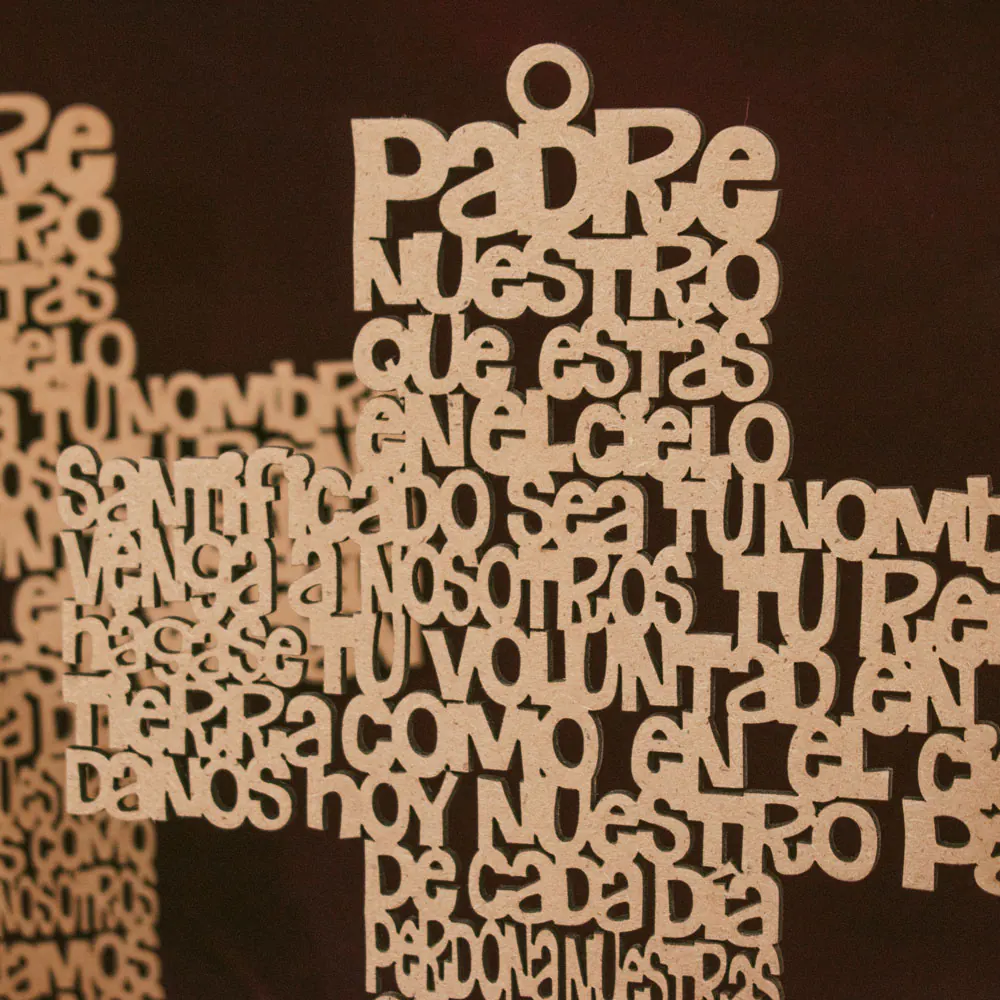 PADRE
NUESTRO
QUE ESTAS
EN EL CIELO
SANTIFICADO SEA TU NOMB
VENGA A NOSOTROS TU RE
hagase TU VOLUNTAD EN T
TIERRA COMO EN EL CI
DANOS hOY NUESTRO PA
DE CADA DIA
PERDONA NUESTRAS
RE
RO
TAS
ELO
A TU NOMBR
S COMO
NOSOTROS
AMOS